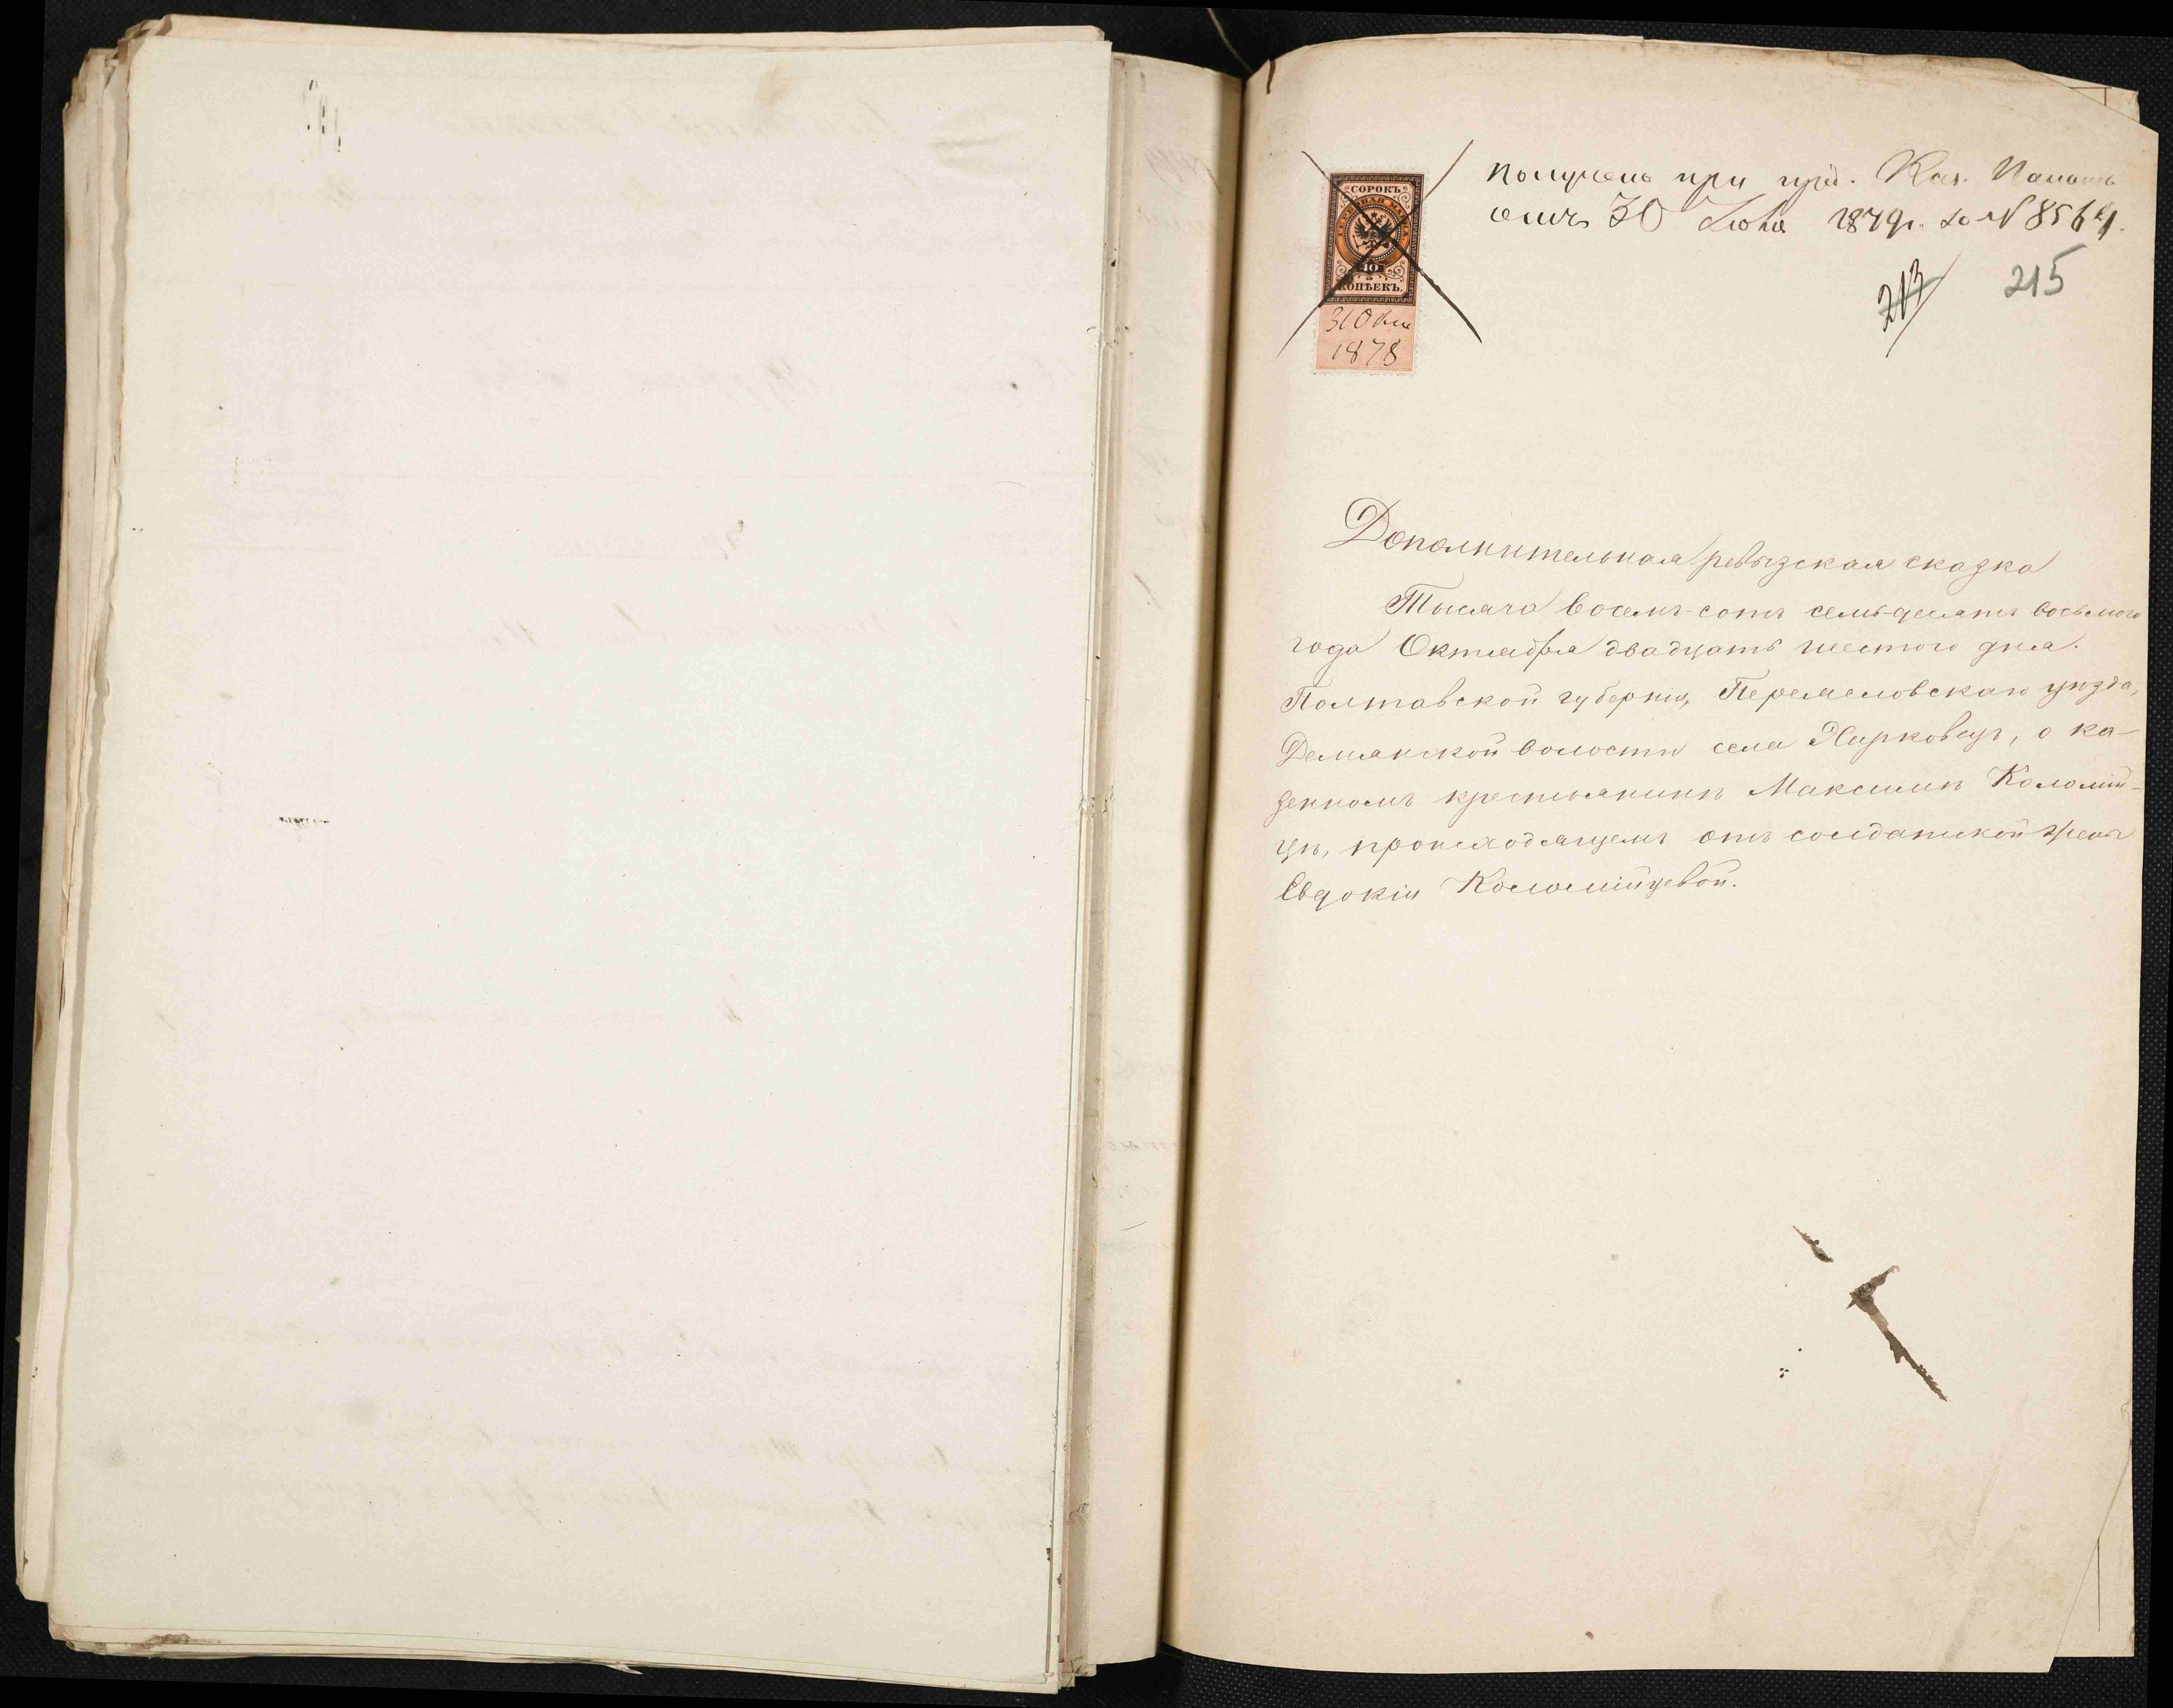 СОРОКЪ
КОПѢЕКЪ.
1878
Получено при пред. Каз. Палаты
отъ 30 Іюня 1879 г. за № 8564.
213
215
Дополнительная ревизская сказка
Тысяча восемь-сотъ семь-десятъ восьмого
года Октября двадцать шестого дня.
Полтавской губерніи, Переяславскаго уѣзда,
Демянской волости села Харковецъ, о ка-
зенномъ крестьянинѣ Максимѣ Коломій-
цѣ, происходящемъ отъ солдатской жены
Евдокіи Коломійцевой.